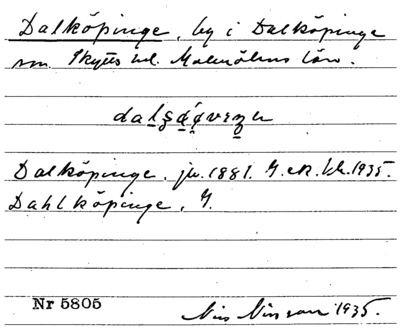 Dalköpinge, by i Dalköpinge
sn Skytts hd. Malmöhus län.
Dalköpinge, jvr. 1881. G. ek. kk. 1935.
Dahlköpinge, G.
Nr 5805
Nils Nilsson 1935.